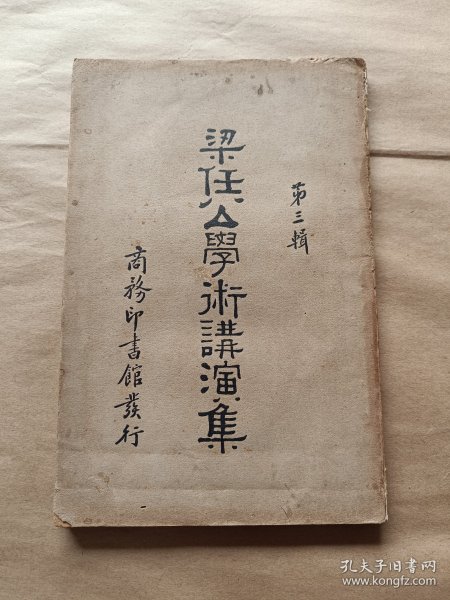 第三輯
梁任公學術講演集
商務印書館發行
孔夫子旧书网
www.kongfz.com